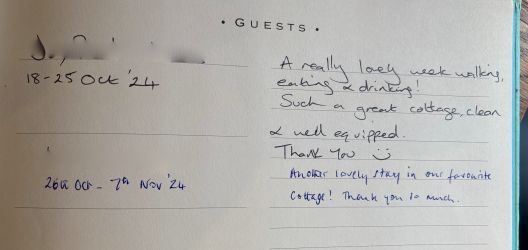 • GUESTS •
18-25 Oct '24
A really lovely week walking,
eating & drinking!
Such a great cottage, clean
& well equipped.
Thank you
26th Oct - 7th Nov '24
Another lovely stay in our favourite
cottage! Thank you so much.